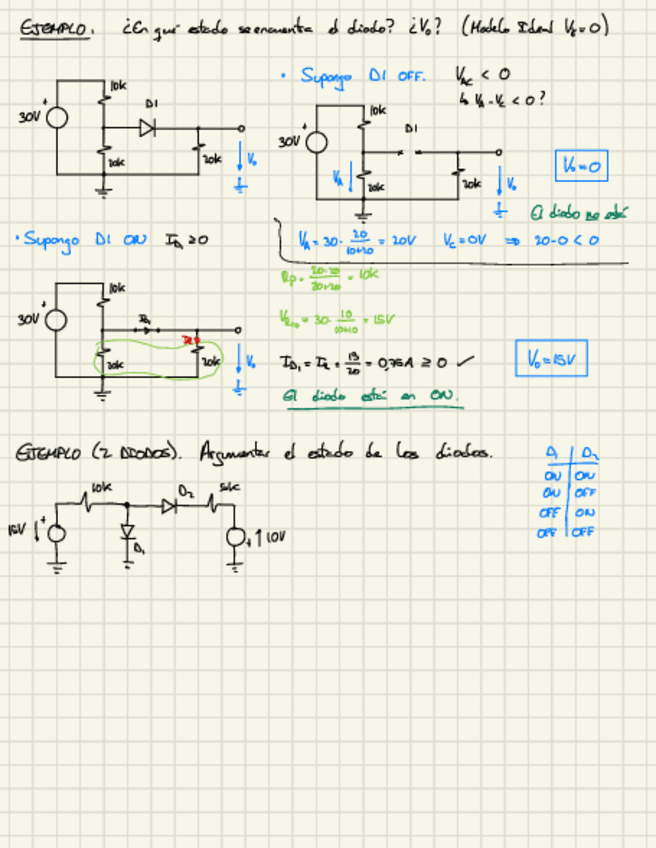 EJEMPLO. ¿En qué estado se encuentra el diodo? ¿V₀? (Modelo Ideal Vγ=0)
• Supongo D1 OFF. V_AC < 0
↳ V_A - V_C < 0?
10k
D1
30V
20k
20k
V₀
10k
D1
30V
V_A
20k
20k
V₀
V₀=0
El diodo no está
V_A = 30 · 20/(10+20) = 20V V_C = 0V ⇒ 20-0 < 0
• Supongo D1 ON I_D₁ ≥ 0
10k
30V
20k
20k
V₀
Rp = 20·20/(20+20) = 10k
= 30 · 10/(10+10) = 15V
I_D₁ = I_R = 15/20 = 0,75A ≥ 0 ✓
V₀=15V
El diodo está en ON.
EJEMPLO (2 DIODOS). Argumentar el estado de los diodos.
D₁ | D₂
ON | ON
ON | OFF
OFF | ON
OFF | OFF
10k
D₂
5k
15V
D₁
10V